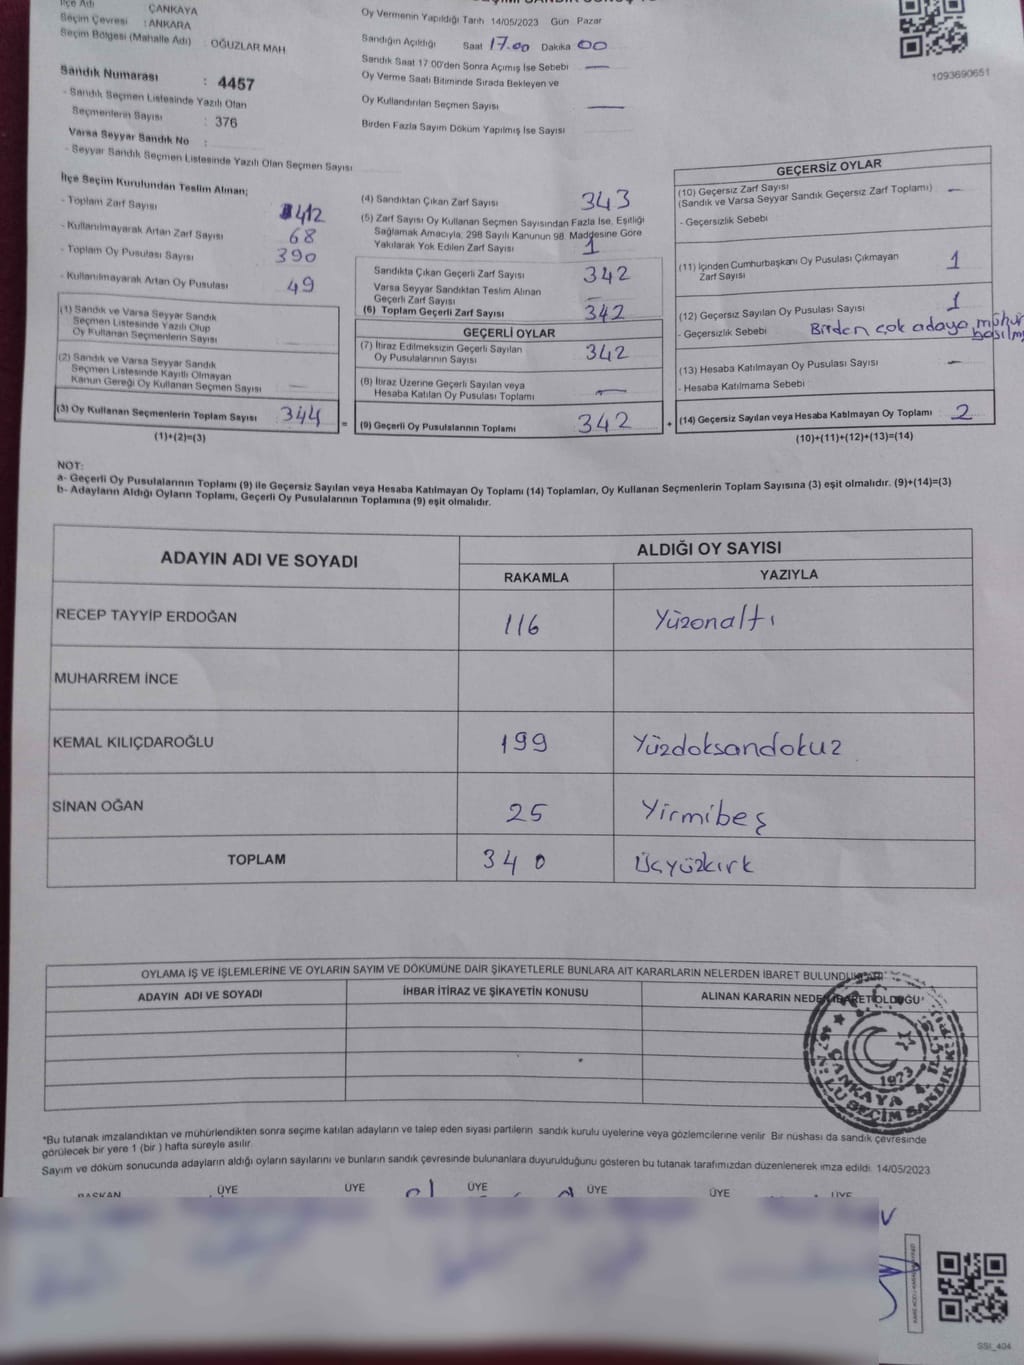 İlçe Adı : ÇANKAYA
Seçim Çevresi : ANKARA
Seçim Bölgesi (Mahalle Adı) : OĞUZLAR MAH
Sandık Numarası : 4457
- Sandık Seçmen Listesinde Yazılı Olan
Seçmenlerin Sayısı : 376
Varsa Seyyar Sandık No :
- Seyyar Sandık Seçmen Listesinde Yazılı Olan Seçmen Sayısı
Oy Vermenin Yapıldığı Tarih 14/05/2023 Gün Pazar
Sandığın Açıldığı Saat 17.00 Dakika 00
Sandık Saat 17:00'den Sonra Açımış İse Sebebi —
Oy Verme Saati Bitiminde Sırada Bekleyen ve
Oy Kullandırılan Seçmen Sayısı —
Birden Fazla Sayım Döküm Yapılmış İse Sayısı
1093690651
İlçe Seçim Kurulundan Teslim Alınan;
- Toplam Zarf Sayısı 412
- Kullanılmayarak Artan Zarf Sayısı 68
- Toplam Oy Pusulası Sayısı 390
- Kullanılmayarak Artan Oy Pusulası 49
(1) Sandık ve Varsa Seyyar Sandık
Seçmen Listesinde Yazılı Olup
Oy Kullanan Seçmenlerin Sayısı
(2) Sandık ve Varsa Seyyar Sandık
Seçmen Listesinde Kayıtlı Olmayan
Kanun Gereği Oy Kullanan Seçmen Sayısı —
(3) Oy Kullanan Seçmenlerin Toplam Sayısı 344 =
(1)+(2)=(3)
(4) Sandıktan Çıkan Zarf Sayısı 343
(5) Zarf Sayısı Oy Kullanan Seçmen Sayısından Fazla İse, Eşitliği
Sağlamak Amacıyla, 298 Sayılı Kanunun 98. Maddesine Göre
Yakılarak Yok Edilen Zarf Sayısı 1
Sandıkta Çıkan Geçerli Zarf Sayısı 342
Varsa Seyyar Sandıktan Teslim Alınan
Geçerli Zarf Sayısı —
(6) Toplam Geçerli Zarf Sayısı 342
GEÇERLİ OYLAR
(7) İtiraz Edilmeksizin Geçerli Sayılan
Oy Pusulalarının Sayısı 342
(8) İtiraz Üzerine Geçerli Sayılan veya
Hesaba Katılan Oy Pusulası Toplamı —
(9) Geçerli Oy Pusulalarının Toplamı 342 +
GEÇERSİZ OYLAR
(10) Geçersiz Zarf Sayısı
(Sandık ve Varsa Seyyar Sandık Geçersiz Zarf Toplamı) —
- Geçersizlik Sebebi
(11) İçinden Cumhurbaşkanı Oy Pusulası Çıkmayan
Zarf Sayısı 1
(12) Geçersiz Sayılan Oy Pusulası Sayısı 1
- Geçersizlik Sebebi Birden çok adaya mühür
basılm
(13) Hesaba Katılmayan Oy Pusulası Sayısı —
- Hesaba Katılmama Sebebi
(14) Geçersiz Sayılan veya Hesaba Katılmayan Oy Toplamı 2
(10)+(11)+(12)+(13)=(14)
NOT:
a- Geçerli Oy Pusulalarının Toplamı (9) ile Geçersiz Sayılan veya Hesaba Katılmayan Oy Toplamı (14) Toplamları, Oy Kullanan Seçmenlerin Toplam Sayısına (3) eşit olmalıdır. (9)+(14)=(3)
b- Adayların Aldığı Oyların Toplamı, Geçerli Oy Pusulalarının Toplamına (9) eşit olmalıdır.
ADAYIN ADI VE SOYADI ALDIĞI OY SAYISI
RAKAMLA YAZIYLA
RECEP TAYYİP ERDOĞAN 116 Yüzonaltı
MUHARREM İNCE
KEMAL KILIÇDAROĞLU 199 Yüzdoksandokuz
SİNAN OĞAN 25 Yirmibeş
TOPLAM 340 Üçyüzkırk
OYLAMA İŞ VE İŞLEMLERİNE VE OYLARIN SAYIM VE DÖKÜMÜNE DAİR ŞİKAYETLERLE BUNLARA AİT KARARLARIN NELERDEN İBARET BULUNDUĞU
ADAYIN ADI VE SOYADI İHBAR İTİRAZ VE ŞİKAYETİN KONUSU ALINAN KARARIN NEDEN İBARET OLDUĞU
T.C.
1923
ÇANKAYA
*Bu tutanak imzalandıktan ve mühürlendikten sonra seçime katılan adayların ve talep eden siyasi partilerin sandık kurulu üyelerine veya gözlemcilerine verilir. Bir nüshası da sandık çevresinde
görülecek bir yere 1 (bir) hafta süreyle asılır.
Sayım ve döküm sonucunda adayların aldığı oyların sayılarını ve bunların sandık çevresinde bulunanlara duyurulduğunu gösteren bu tutanak tarafımızdan düzenlenerek imza edildi. 14/05/2023
BAŞKAN ÜYE ÜYE ÜYE ÜYE ÜYE ÜYE
SSI_404